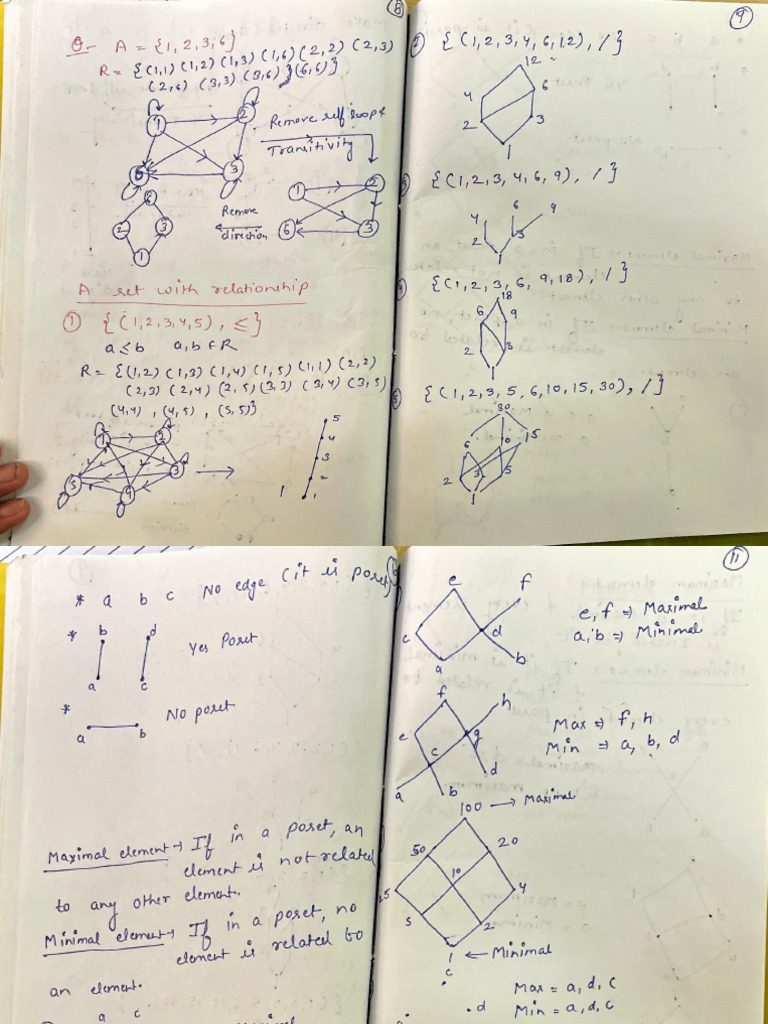 8
Q- A = {1, 2, 3, 6}
R = {(1,1) (1,2) (1,3) (1,6) (2,2) (2,3)
(2,6) (3,3) (3,6) } (6,6)}
1
2
6
3
Remove self loop &
Transitivity
1
2
6
3
Remove
direction
6
2
3
1
A set with relationship
① {(1,2,3,4,5), ≤}
a≤b a,b ∈ R
R = {(1,2) (1,3) (1,4) (1,5) (1,1) (2,2)
(2,3) (2,4) (2,5) (3,3) (3,4) (3,5)
(4,4), (4,5), (5,5)}
1
2
5
4
3
5
4
3
2
1
1
9
② {(1,2,3,4,6,12), /}
12
4
6
2
3
1
③ {(1,2,3,4,6,9), /}
4
6
9
2
3
1
④ {(1,2,3,6,9,18), /}
18
6
9
2
3
1
⑤ {(1,2,3,5,6,10,15,30), /}
30
6
10
15
2
3
5
1
* a b c No edge (it is poset)
* b d Yes Poset
a c
* a b No poset
Maximal element → If in a poset, an
element is not related
to any other element.
Minimal element → If in a poset, no
element is related to
an element.
a c
11
e
f
c
d
a
b
e, f ⇒ Maximal
a, b ⇒ Minimal
f
h
e
g
c
d
a
b
Max ⇒ f, h
Min ⇒ a, b, d
100 → Maximal
50
20
10
25
4
5
2
1 ← Minimal
c
d
Max = a, d, c
Min = a, d, c